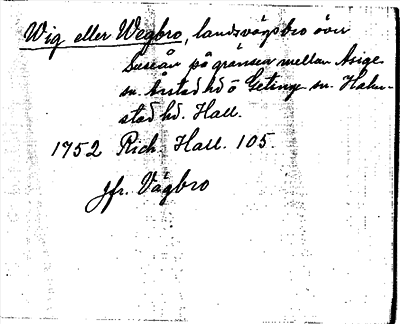 Wig eller Wegbro, landsvägsbro över
Suseån på gränsen mellan Asige
sn. Årstad hd o Getinge sn. Halm-
stad hd. Hall.
1752 Rich. Hall. 105.
jfr. Vägbro